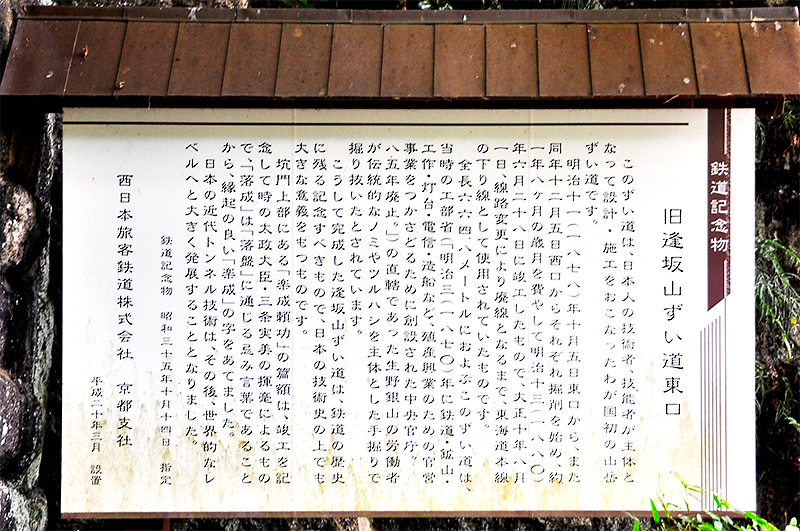 鉄道記念物
旧逢坂山ずい道東口
このずい道は、日本人の技術者、技能者が主体と
なって設計・施工をおこなったわが国初の山岳
ずい道です。
明治十一(一八七八)年十月五日東口から、また
同年十二月五日西口からそれぞれ掘削を始め、約
一年八ヶ月の歳月を費やして明治十三(一八八〇)
年六月二十八日に竣工したもので、大正十年八月
一日、線路変更により廃線となるまで、東海道本線
の下り線として使用されていたものです。
全長六六四.八メートルにおよぶこのずい道は、
当時の工部省(「明治三(一八七〇)年に鉄道・鉱山・
工作・灯台・電信・造船など、殖産興業のための官営
事業をつかさどるために創設された中央官庁。一八
八五年廃止。」)の直轄であった生野銀山の労働者
が伝統的なノミやツルハシを主体とした手掘りで
掘り抜いたとされています。
こうして完成した逢坂山ずい道は、鉄道の歴史
に残る記念すべきもので、日本の技術史の上でも
大きな意義をもつものです。
坑門上部にある「楽成頼功」の篇額は、竣工を記
念して時の太政大臣・三条実美の揮毫によるもの
で、「落成」は「落盤」に通じる忌み言葉であること
から、縁起の良い「楽成」の字をあてました。
日本の近代トンネル技術は、その後、世界的なレ
ベルへと大きく発展することとなりました。
鉄道記念物 昭和三十五年十月十四日 指定
西日本旅客鉄道株式会社 京都支社
平成二十年三月 設置